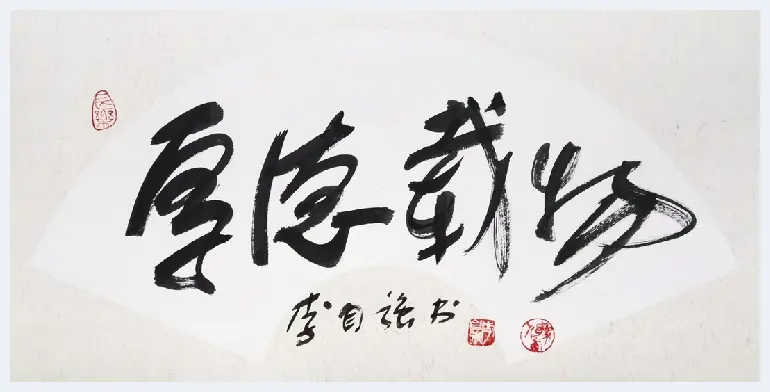 厚德载物
李自强书